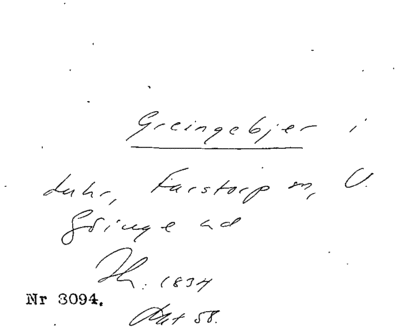 Greingebjer i
Luhr, Farstorp sn, V.
Göinge hd
Th. 1834
Nr 3094.
Akt 58.